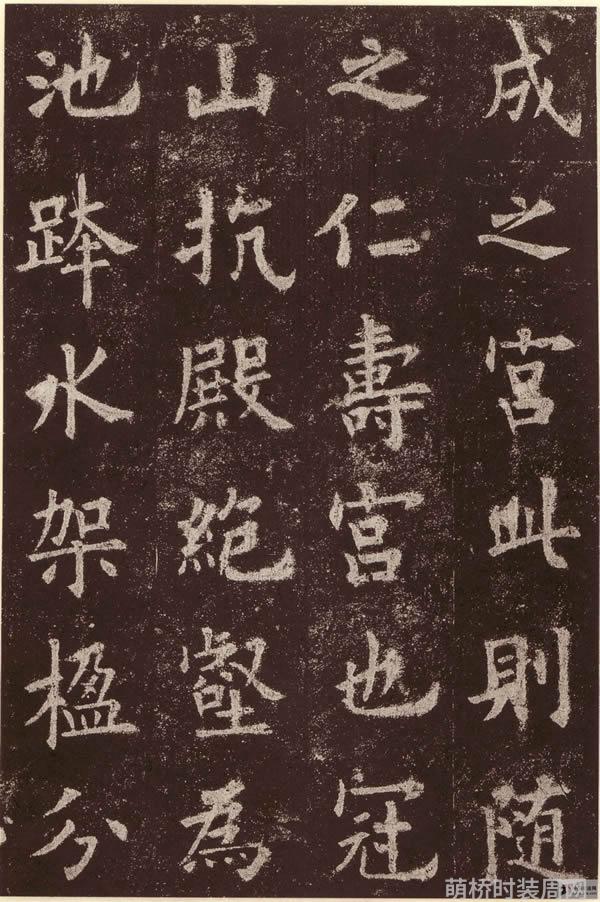 成之宮此則随
之仁壽宮也冠
山抗殿絶壑為
池跨水架楹分
萌桥时装周